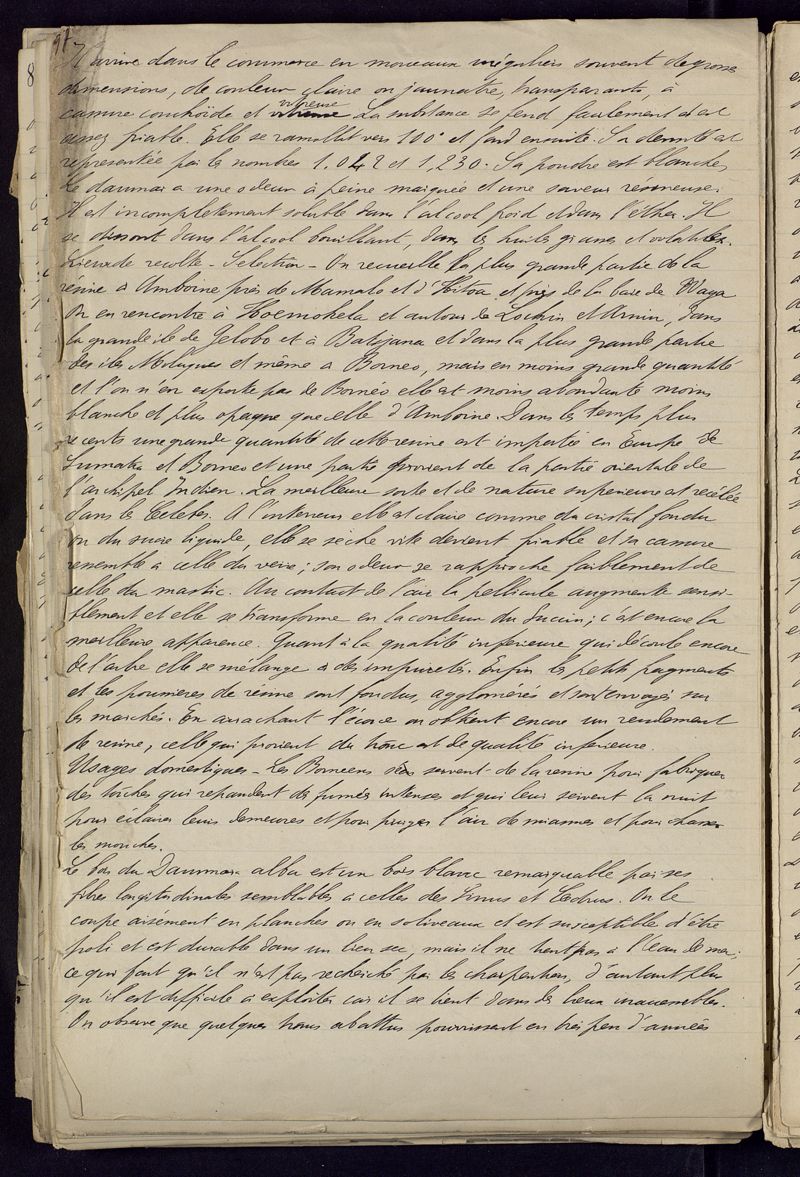 97
Il arrive dans le commerce en morceaux irréguliers souvent de grosses
dimensions, de couleur claire ou jaunatre, transparants, à
cassure conchoïde et vitreuse
vitreuse La substance se fend facilement et est
assez friable. Elle se ramollit vers 100° et fond ensuite. Sa densité est
representée par les nombres 1,042 et 1,230. Sa poudre est blanche,
le dammar a une odeur à peine marquée et une saveur résineuse.
Il est incomplètement soluble dans l'alcool froid et dans l'éther. Il
se dissout dans l'alcool bouillant, dans les huiles grasses et volatiles.
Lieux de recolte - Selection - On recueille la plus grande partie de la
résine à Amboine près de Mamalo et d'Hitoa et près de la baie de Waga
On en rencontre à Hoemohela et autour de et dans
la grande ile de Gelobo et à Batijana et dans la plus grande partie
des iles Moluques et même à Borneo, mais en moins grande quantité
et l'on n'en exporte pas de Bornéo elle est moins abondante moins
blanche et plus opaque que celle d'Amboine. Dans les temps plus
recents une grande quantité de cette resine est importée en Europe de
Sumatra et Borneo et une partie provient de la partie orientale de
l'archipel Indien. La meilleure sorte et de nature superieure est recélée
dans les Celebes. A l'interieur elle est claire comme du cristal fondu
ou du sucre liquide, elle se sèche vite devient friable et sa cassure
ressemble à celle du verre; son odeur se rapproche faiblement de
celle du mastic. Au contact de l'air la pellicule augmente sensi-
blement et elle se transforme en la couleur du Succin; c'est encore la
meilleure apparence. Quant à la qualité inférieure qui découle encore
de l'arbre elle se mélange à des impuretés. Enfin les petits fragments
et les poussières de resine sont fondus, agglomérés et sont envoyés sur
les marchés. En arrachant l'écorce on obtient encore un rendement
de resine, celle qui provient du tronc est de qualité inferieure.
Usages domestiques - Les Borneens se servent de la resine pour fabriquer
des torches qui repandent des fumées intenses et qui leur servent la nuit
pour eclairer leurs demeures et pour purger l'air de miasmes et pour chasser
les mouches.
Le bois du Dammara alba est un bois blanc remarquable par ses
fibres longitudinales semblables à celles des Pinus et Cedrus. On le
coupe aisément en planches ou en soliveaux et est susceptible d'être
poli et est durable dans un lieu sec, mais il ne tient pas à l'eau de mer;
ce qui fait qu'il n'est pas recherché par les charpentiers, d'autant plus
qu'il est difficile à exploiter car il se tient dans des lieux inaccessibles.
On observe que quelques troncs abattus pourrissent en très peu d'années